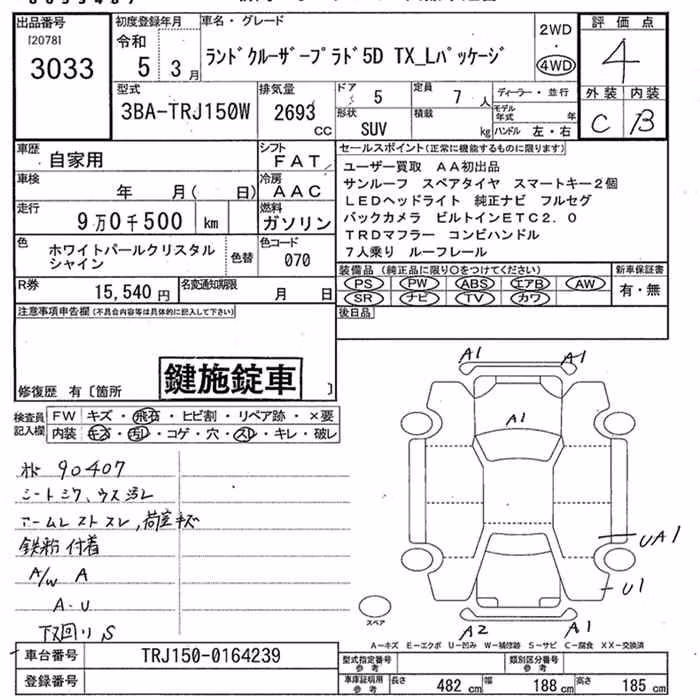 出品番号
120781
3033
初度登録年月
令和
5 3月
車名・グレード
ランドクルーザープラド5D TX_Lパッケージ
2WD
4WD
評価点
4
外装 内装
C B
型式
3BA-TRJ150W
排気量
2693 CC
ドア 5
定員 7人
形状 SUV
積載 kg
ディーラー・並行
モデル年式 年
ハンドル 左・右
車歴 自家用
シフト FAT
車検 年 月( 日)
冷房 AAC
走行 9万0千500 km
燃料 ガソリン
色 ホワイトパールクリスタルシャイン
色替
色コード 070
R券 15,540円
名変通知期限 月 日
セールスポイント(正常に機能するものに限ります)
ユーザー買取 AA初出品
サンルーフ スペアタイヤ スマートキー2個
LEDヘッドライト 純正ナビ フルセグ
バックカメラ ビルトインETC2.0
TRDマフラー コンビハンドル
7人乗り ルーフレール
装備品(純正品に限り○をつけてください)
PS PW ABS エアB AW
SR ナビ TV カワ
新車保証書
有・無
後日品
注意事項申告欄(不具合内容等は具体的に記入して下さい)
鍵施錠車
修復歴 有〔箇所 〕
検査員記入欄
FW キズ・飛石・ヒビ割・リペア跡・×要
内装 キズ・汚レ・コゲ・穴・スレ・キレ・破レ
90407
シートシワ、ウス汚レ
アームレストスレ,荷室キズ
鉄粉付着
A/W A
A.U
下回り,S
A1 A1
A1
UA1
U1
A2 A1
スペア
A-キズ E-エクボ U-凹み W-補修跡 S-サビ C-腐食 XX-交換済
車台番号 TRJ150-0164239
登録番号
型式指定番号 参考
類別区分番号 参考
車庫証明用 参考
長さ 482cm 幅 188cm 高さ 185cm